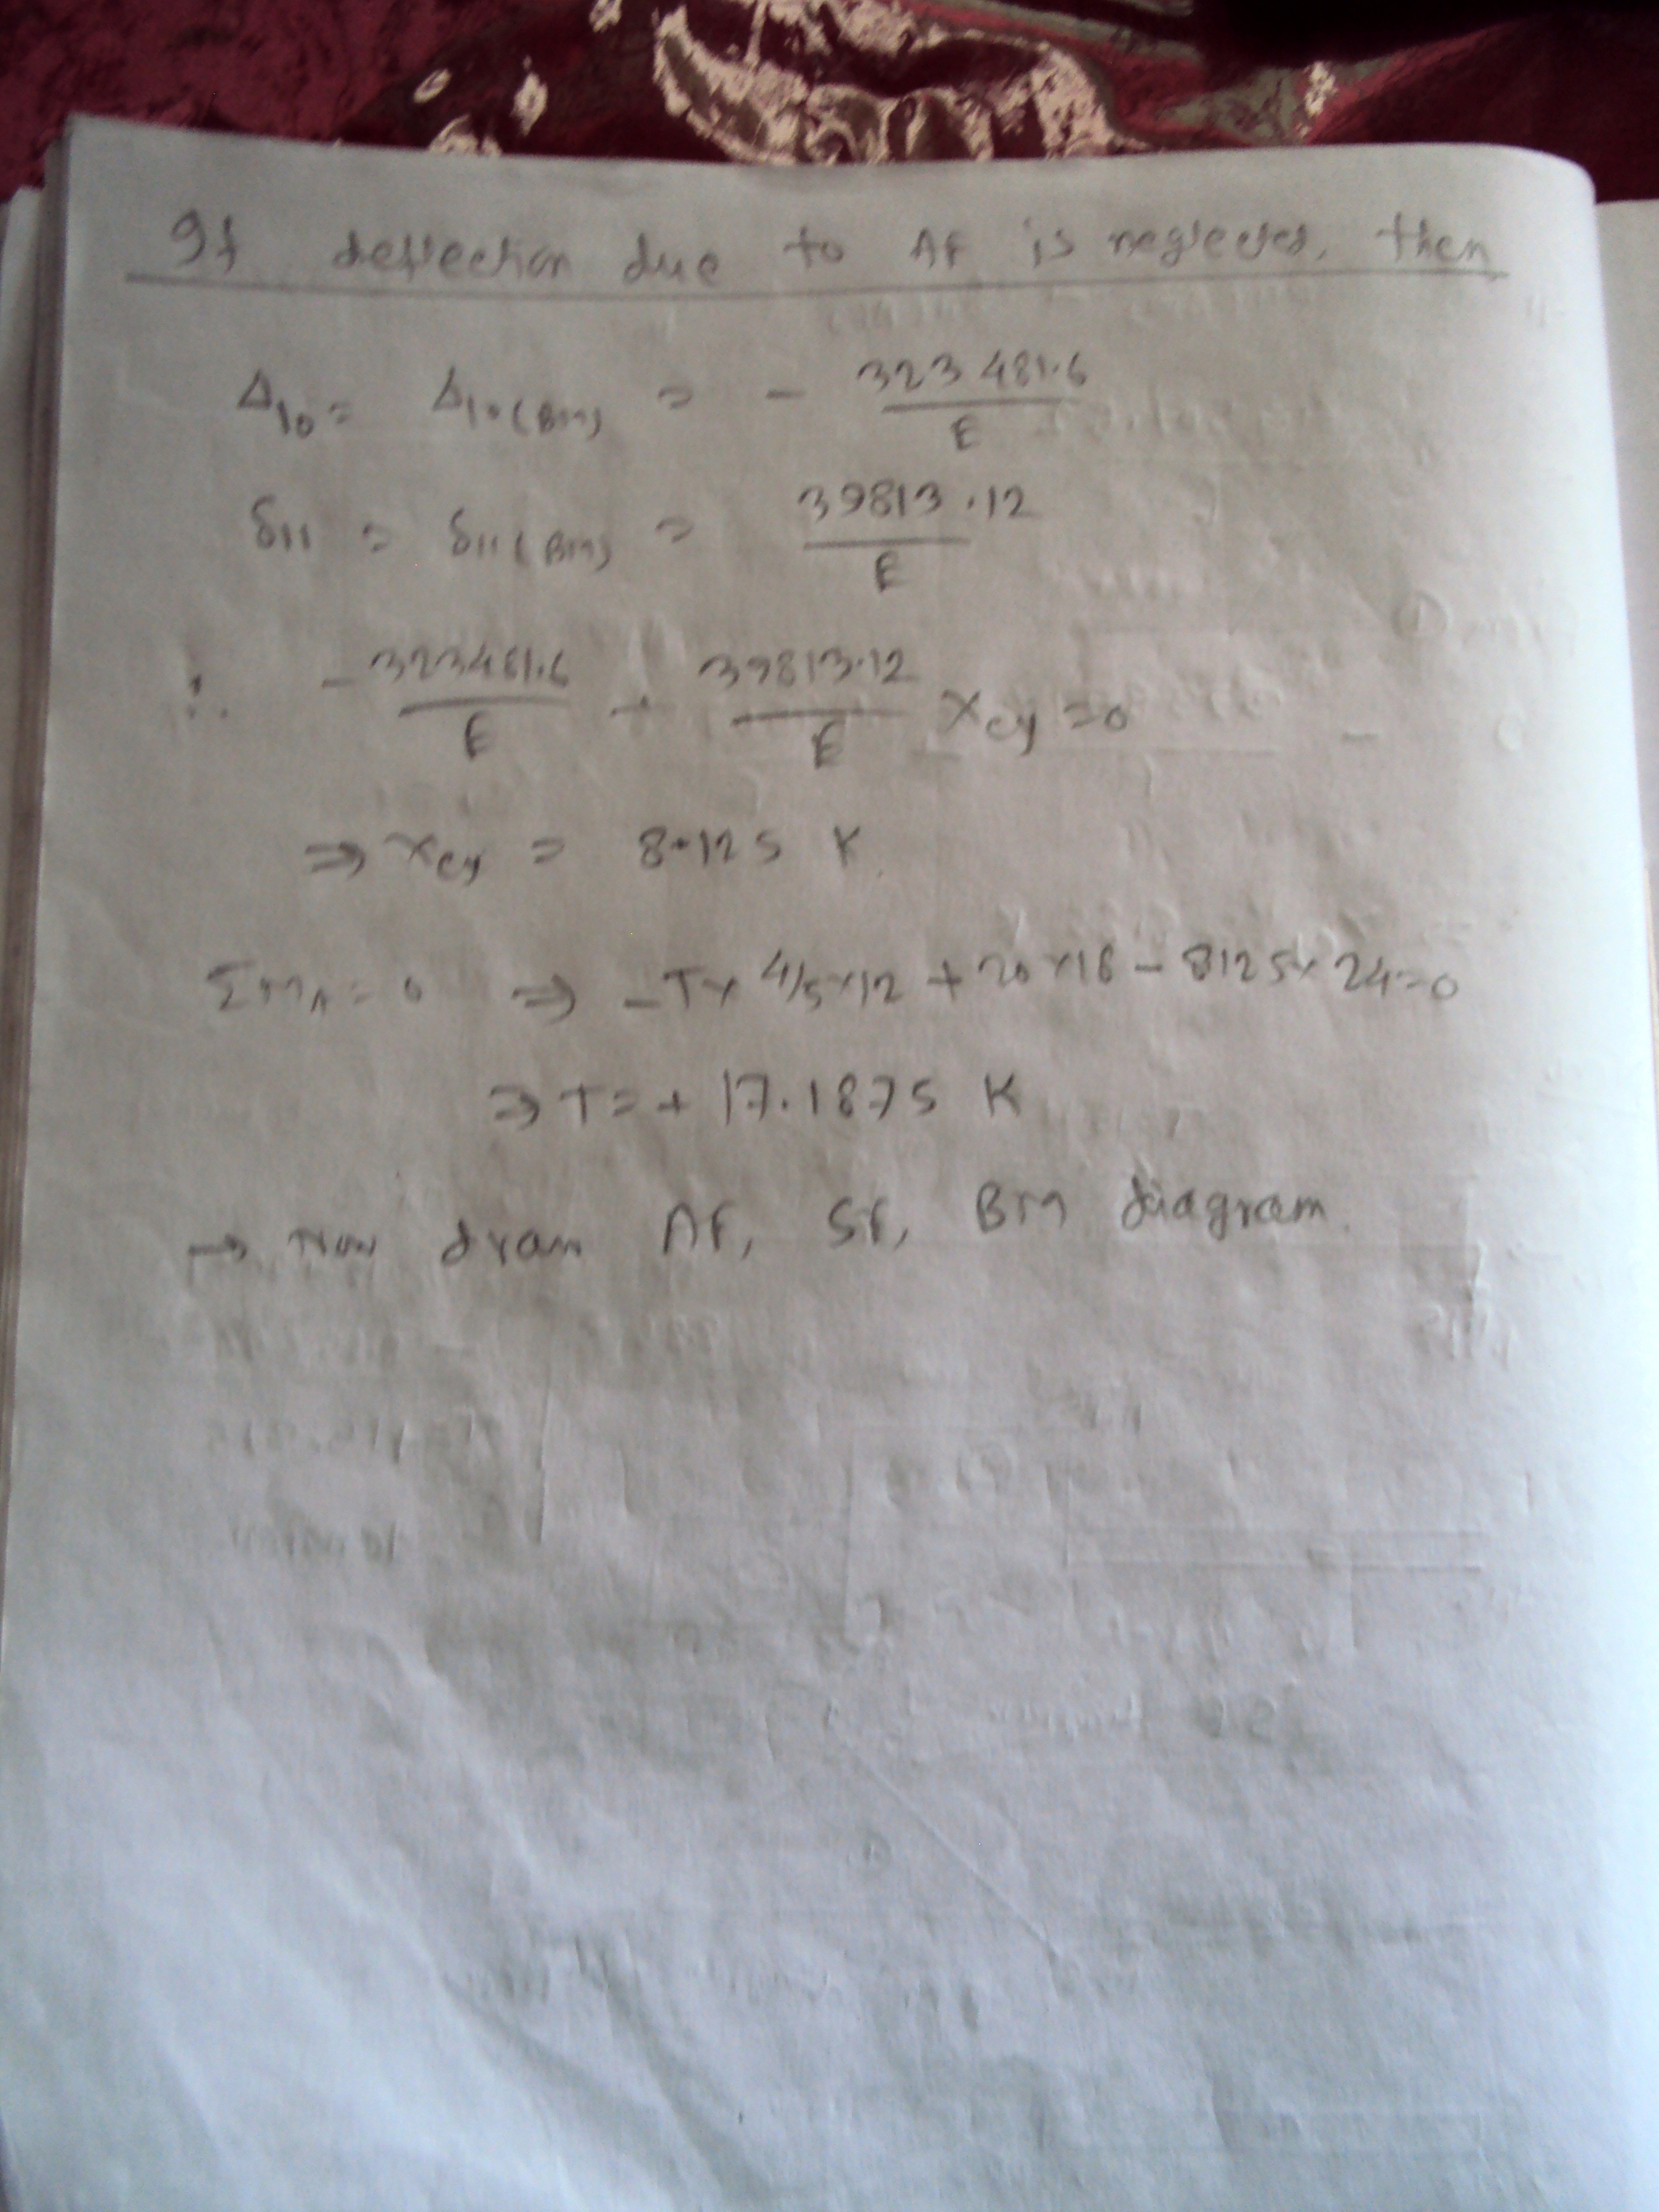 If deflection due to AF is neglected, then
Δ10 = Δ10(BM) = - 323481.6 / E
δ11 = δ11(BM) = 39813.12 / E
∴ - 323481.6 / E + 39813.12 / E Xcy = 0
⇒ Xcy = 8.125 K
ΣMA = 0 ⇒ -T× 4/5×12 + 20×18 - 8125× 24=0
⇒ T = + 17.1875 K
→ Now draw AF, SF, BM diagram.